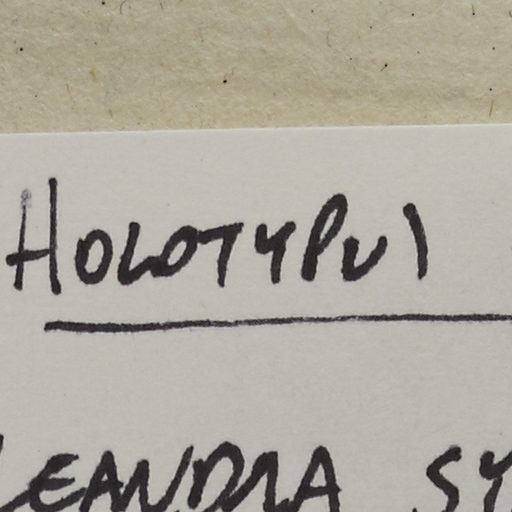 HOLOTYPUS
LEANDRA SY